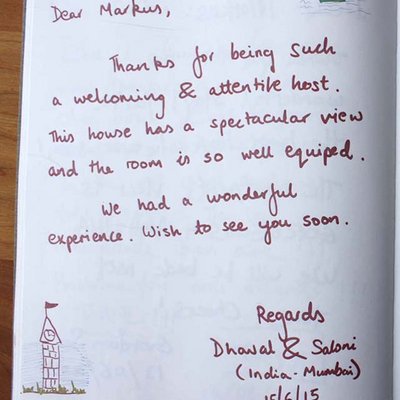 Dear Markus,
Thanks for being such
a welcoming & attentile host.
This house has a spectacular view
and the room is so well equiped.
We had a wonderful
experience. Wish to see you soon.
Regards
Dhaval & Saloni
(India - Mumbai)
15/6/15